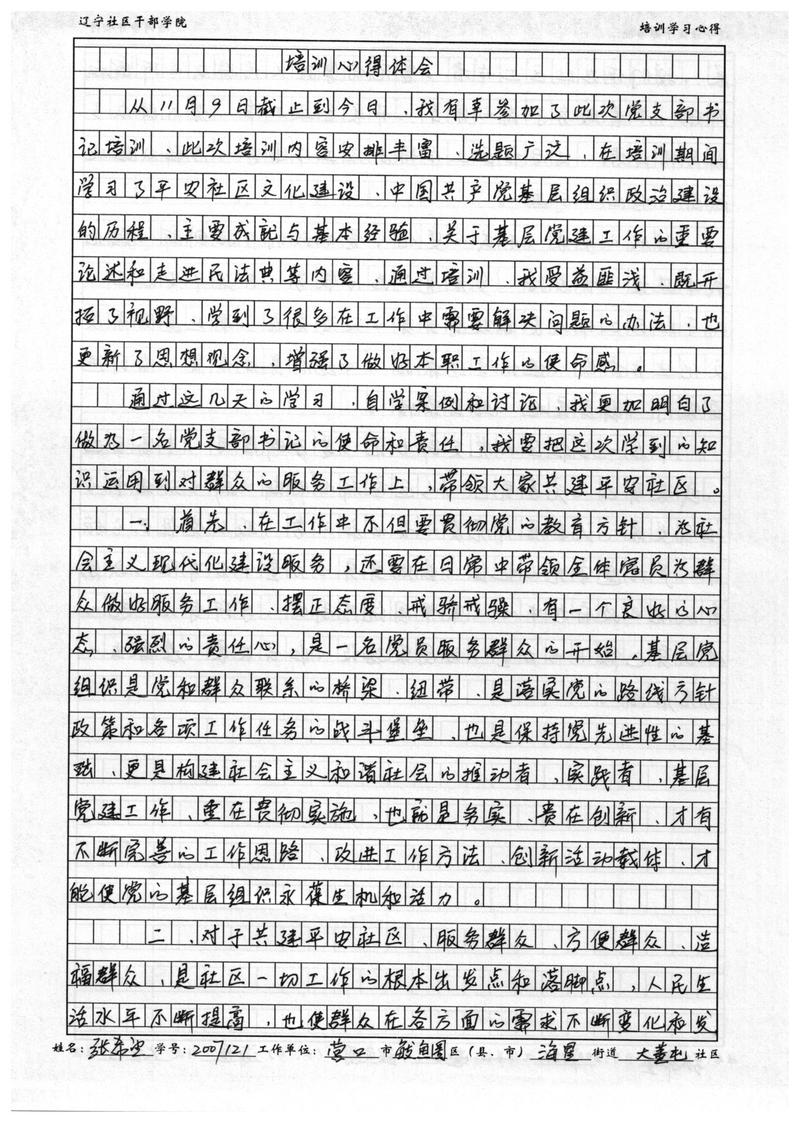 辽宁社区干部学院 培训学习心得
培训心得体会
从11月9日截止到今日、我有幸参加了此次党支部书
记培训、此次培训内容安排丰富、选题广泛、在培训期间
学习了平安社区文化建设、中国共产党基层组织政治建设
的历程、主要成就与基本经验、关于基层党建工作的重要
论述和走进民法典等内容、通过培训、我受益匪浅、既开
拓了视野、学到了很多在工作中需要解决问题的办法、也
更新了思想观念，增强了做好本职工作的使命感。
通过这几天的学习，自学案例和讨论，我更加明白了
做为一名党支部书记的使命和责任，我要把这次学到的知
识运用到对群众的服务工作上，带领大家共建平安社区。
一、首先，在工作中不但要贯彻党的教育方针，为社
会主义现代化建设服务，还要在日常中带领全体党员为群
众做好服务工作、摆正态度、戒骄戒躁、有一个良好的心
态、强烈的责任心，是一名党员服务群众的开始，基层党
组织是党和群众联系的桥梁、纽带、是落实党的路线方针
政策和各项工作任务的战斗堡垒、也是保持党先进性的基
础、更是构建社会主义和谐社会的推动者，实践者，基层
党建工作、重在贯彻实施、也就是务实、贵在创新、才有
不断完善的工作思路、改进工作方法、创新活动载体、才
能使党的基层组织永葆生机和活力。
二、对于共建平安社区、服务群众、方便群众、造
福群众、是社区一切工作的根本出发点和落脚点，人民生
活水平不断提高，也使群众在各方面的需求不断变化和发
姓名：张希 学号：2007121 工作单位：营口 市 鲅鱼圈 区（县、市） 海星 街道 大董屯 社区